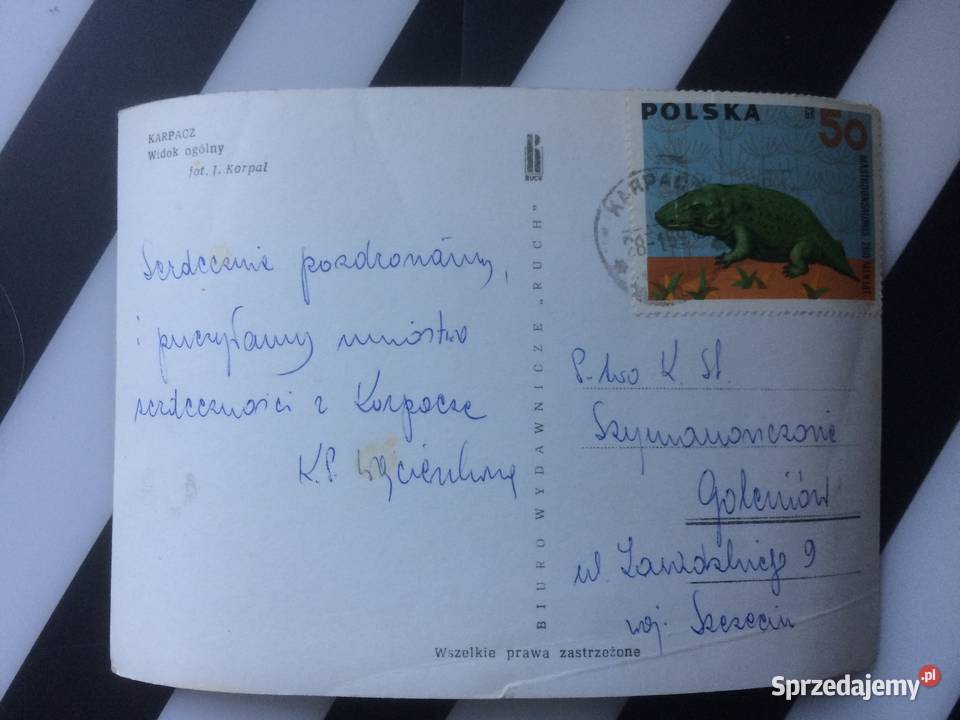 KARPACZ
Widok ogólny
fot. J. Korpal
RUCH
POLSKA
GR 50
KARPACZ
Serdecznie pozdrawiamy,
i przesyłamy mnóstwo
serdeczności z Karpacza
K.P.
BIURO WYDAWNICZE „RUCH"
P-two K. St.
Goleniów
ul. 9
woj. Szczecin
Wszelkie prawa zastrzeżone
Sprzedajemy.pl